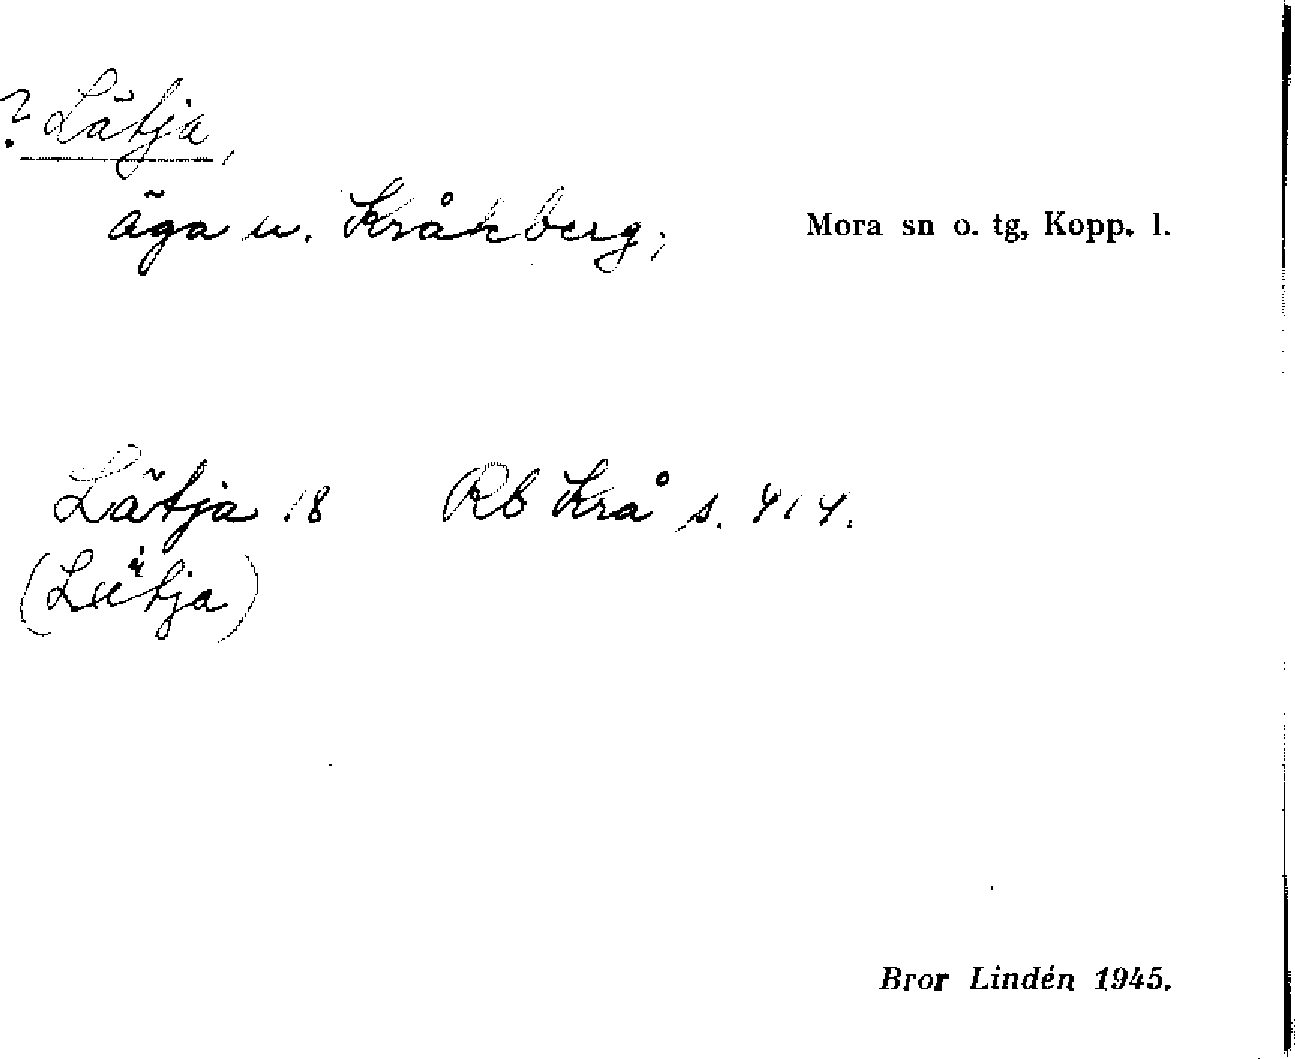 ? Lätja,
äga u. Kråkberg; Mora sn o. tg, Kopp. l.
Lätja 18 Rb Krå s. 414.
(Lütja)
Bror Lindén 1945.